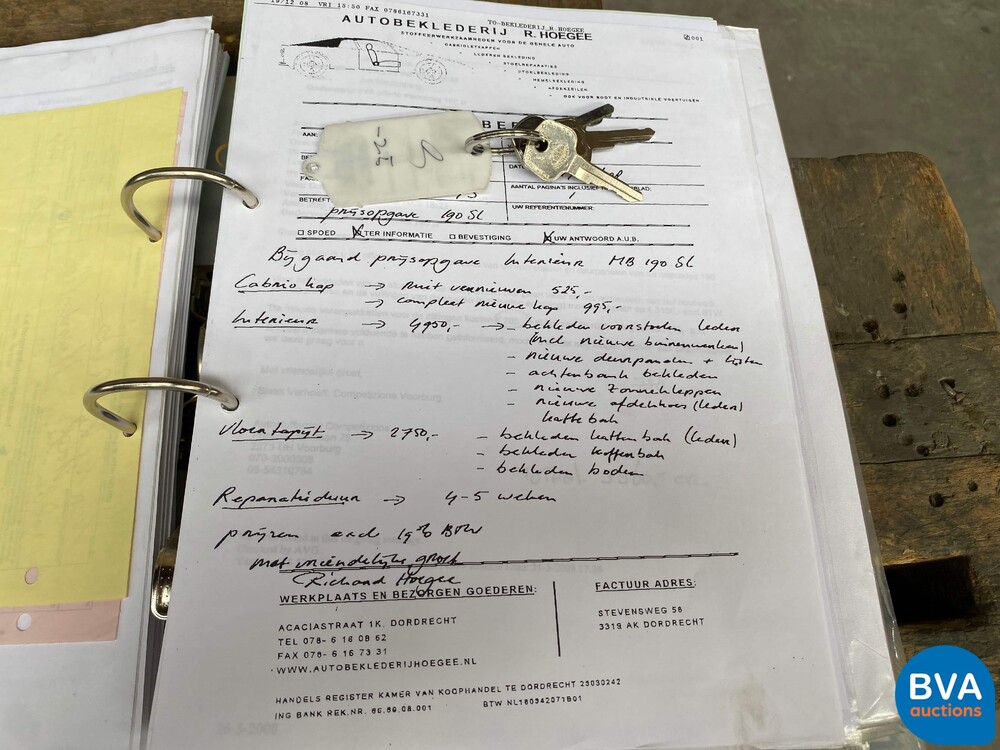 19/12 08 VRI 15:50 FAX 0786167331 TO-BEKLEDERIJ R. HOEGEE
001
AUTOBEKLEDERIJ R. HOEGEE
STOFFEERWERKZAAMHEDEN VOOR DE GEHELE AUTO
CABRIOLETKAPPEN
LEDEREN BEKLEDING
STOELREPARATIES
STOELBEKLEDING
HEMELBEKLEDING
AFDEKZEILEN
OOK VOOR BOOT EN INDUSTRIELE VOERTUIGEN
AAN:
FA
AANTAL PAGINA'S INCLUSIEF BLAD:
BETREFT
prijsopgave 190 SL
UW REFERENTIENUMMER:
SPOED TER INFORMATIE BEVESTIGING UW ANTWOORD A.U.B.
Bijgaand prijsopgave Interieur MB 190 SL
Cabrio kap → ruit vernieuwen 525,-
→ compleet nieuwe kap 995,-
Interieur → 4950,- → - bekleden voorstoelen (leder)
(incl nieuwe binnenwerken)
- nieuwe deurpanelen + lijsten
- achterbank bekleden
- nieuwe zonnekleppen
- nieuwe afdekhoes (leder)
kattebak
Vloertapijt → 2750,- - bekleden kattenbak (leder)
- bekleden kofferbak
- bekleden bodem
Reparatieduur → 4-5 weken
prijzen excl 19% BTW
met vriendelijke groet
Richard Hoegee
WERKPLAATS EN BEZORGEN GOEDEREN:
ACACIASTRAAT 1K. DORDRECHT
TEL 078- 6 16 08 62
FAX 078- 6 16 73 31
WWW.AUTOBEKLEDERIJHOEGEE.NL
FACTUUR ADRES:
STEVENSWEG 56
3319 AK DORDRECHT
HANDELS REGISTER KAMER VAN KOOPHANDEL TE DORDRECHT 23030242
ING BANK REK.NR. 66.69.08.001 BTW NL160342071B01
BVA
auctions